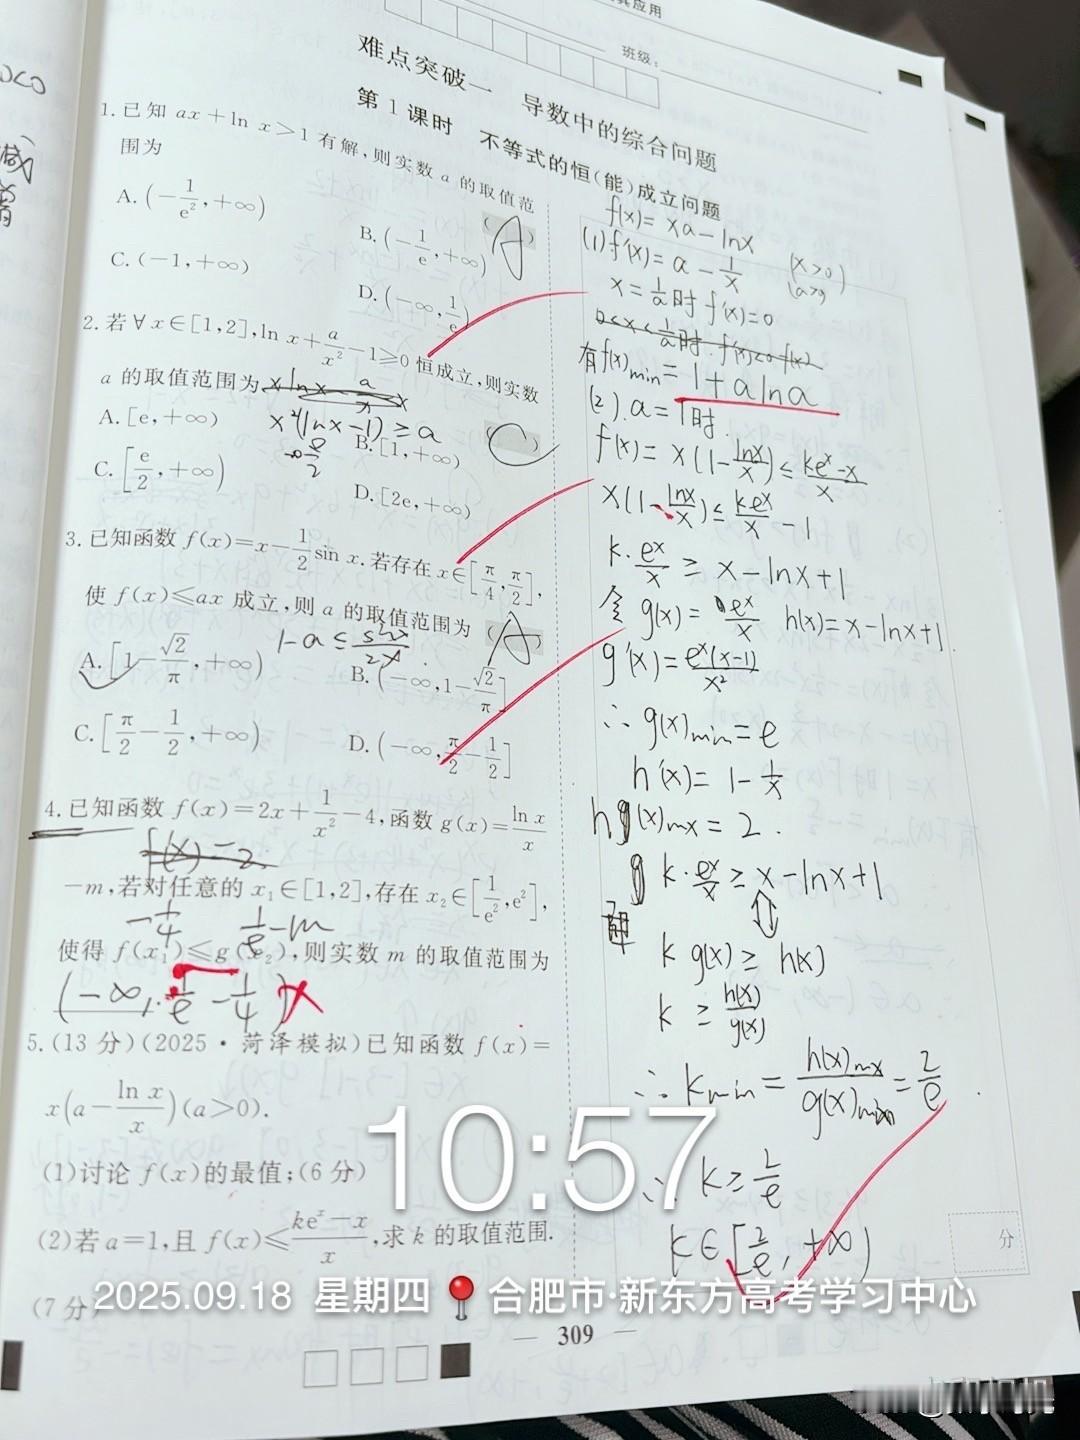 应用
班级：
难点突破一 导数中的综合问题
第1课时 不等式的恒(能)成立问题
1.已知 ax+ln x>1 有解,则实数 a 的取值范
围为 (A)
A.(-1/e²,+∞)
B.(-1/e,+∞)
C.(-1,+∞)
D.(-∞,1/e)
2.若∀x∈[1,2],ln x+a/x²-1≥0 恒成立,则实数
a 的取值范围为 (C)
x²(lnx-1)≥a
A.[e,+∞)
B.[1,+∞)
C.[e/2,+∞)
D.[2e,+∞)
3.已知函数 f(x)=x-1/2 sin x.若存在 x∈[π/4,π/2],
使 f(x)≤ax 成立,则 a 的取值范围为 (A)
1-a≤sinx/2x
A.[1-√2/π,+∞)
B.(-∞,1-√2/π]
C.[π/2-1/2,+∞)
D.(-∞,π/2-1/2]
4.已知函数 f(x)=2x+1/x²-4,函数 g(x)=ln x/x
f(x)=2
-m,若对任意的 x₁∈[1,2],存在 x₂∈[1/e²,e²],
-1/4 1/e-m
使得 f(x₁)≤g(x₂),则实数 m 的取值范围为
(-∞,1/e-1/4)
5.(13 分)(2025·菏泽模拟)已知函数 f(x)=
x(a-ln x/x)(a>0).
(1)讨论 f(x)的最值;(6 分)
(2)若 a=1,且 f(x)≤(keˣ-x)/x,求 k 的取值范围.
(7 分)
f(x)=xa-lnx
(1)f'(x)=a-1/x (x>0)
x=1/a时 f'(x)=0
有f(x)min=1+alna
(2).a=1时.
f(x)=x(1-lnx/x)≤(keˣ-x)/x
x(1-lnx/x)≤keˣ/x-1
k·eˣ/x≥x-lnx+1
令 g(x)=eˣ/x h(x)=x-lnx+1
g'(x)=eˣ(x-1)/x²
∴g(x)min=e
h'(x)=1-1/x
h(x)mx=2.
k·eˣ/x≥x-lnx+1
k g(x)≥h(x)
k≥h(x)/g(x)
∴kmin=h(x)mx/g(x)min=2/e
∴k≥2/e
k∈[2/e,+∞)
分
10:57
2025.09.18 星期四 合肥市·新东方高考学习中心
309